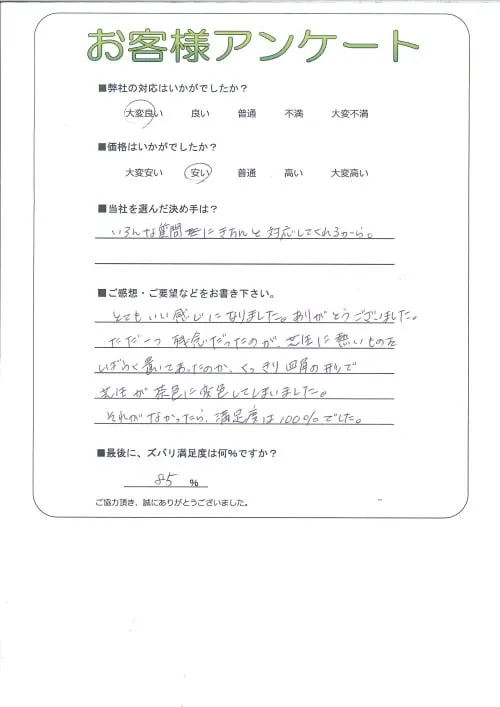 お客様アンケート
■弊社の対応はいかがでしたか？
大変良い 良い 普通 不満 大変不満
■価格はいかがでしたか？
大変安い 安い 普通 高い 大変高い
■当社を選んだ決め手は？
いろんな質問にきちんと対応してくれるから。
■ご感想・ご要望などをお書き下さい。
とてもいい感じになりました。ありがとうございました。
ただ一つ残念だったのが、芝生に熱いものを
しばらく置いてあったのか、くっきり四角の形で
芝生が茶色に変色してしまいました。
それがなかったら、満足度は100%でした。
■最後に、ズバリ満足度は何%ですか？
85 %
ご協力頂き、誠にありがとうございました。